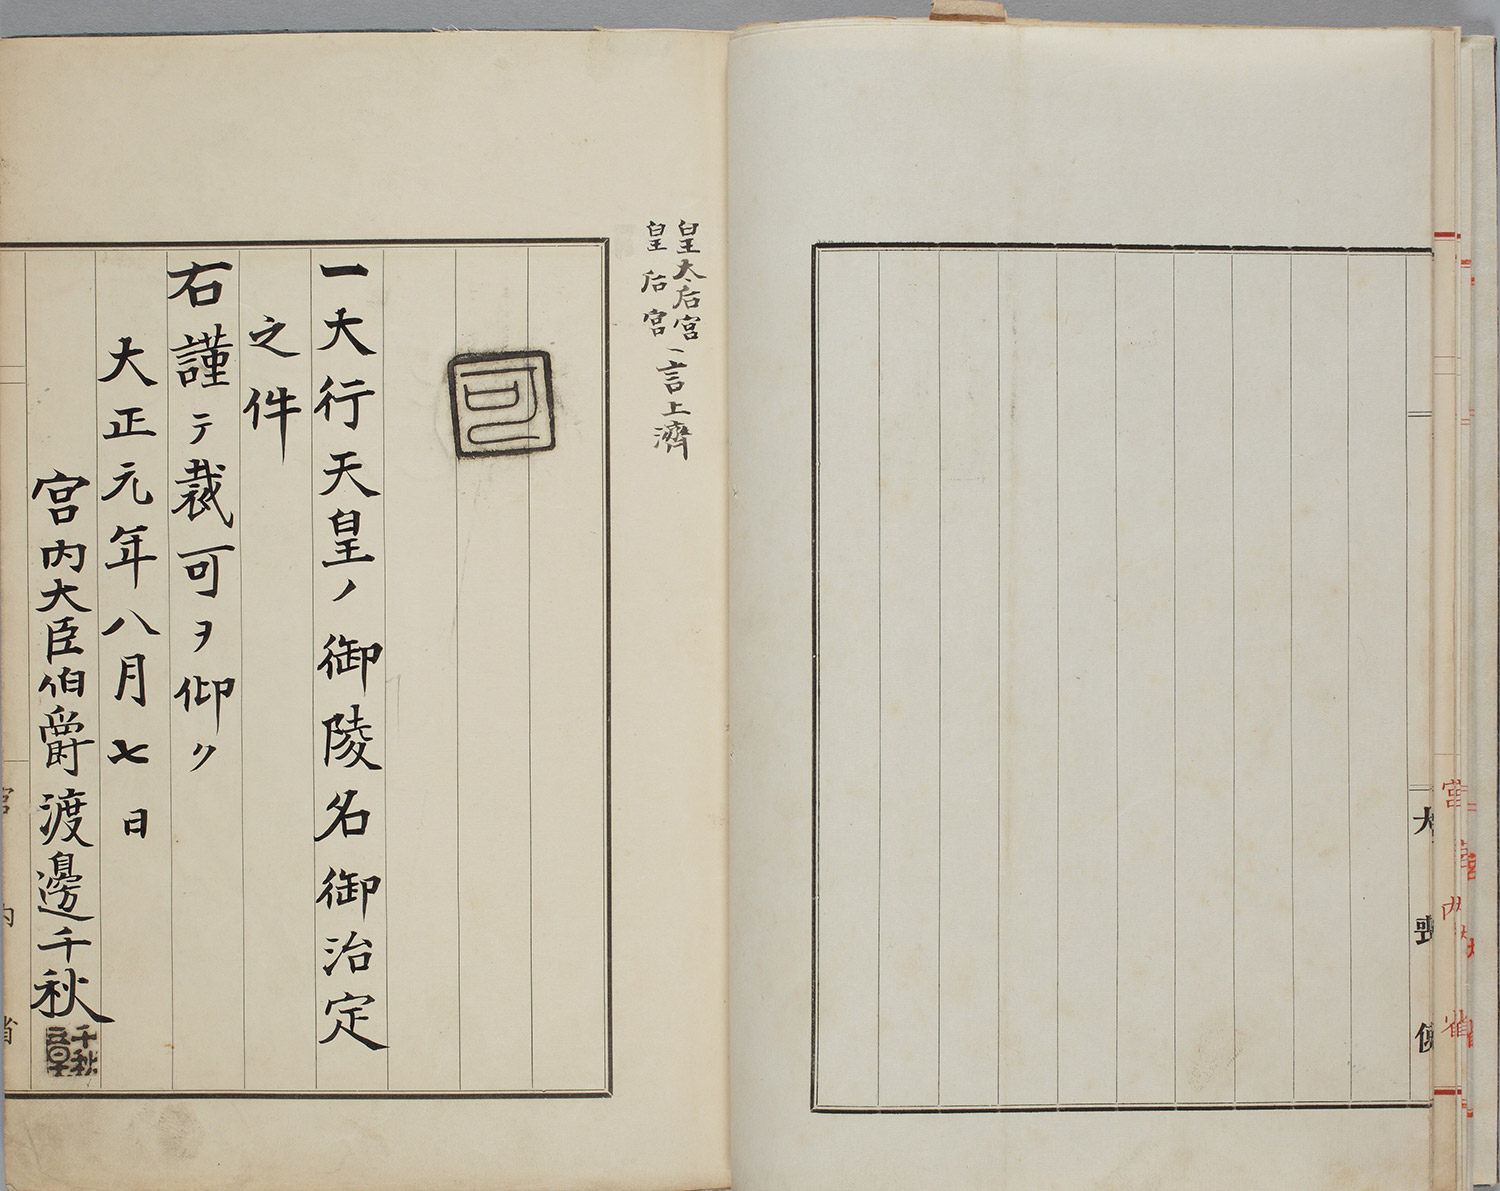 皇太后宮
皇后宮へ言上濟
可
一大行天皇ノ御陵名御治定
之件
右謹テ裁可ヲ仰ク
大正元年八月七日
宮内大臣伯爵渡邊千秋
千秋
宮内省
大喪使
宮内省